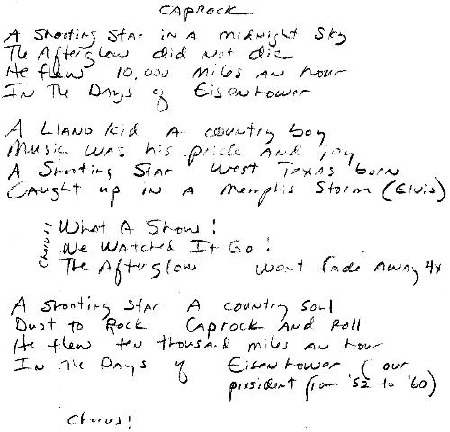 CAPROCK
A Shooting Star in a midnight sky
The Afterglow did not die
He flew 10,000 miles an hour
In The Days of Eisenhower
A LLANO Kid A country boy
Music was his pride and joy
A Shooting Star West Texas born
Caught up in a Memphis Storm (Elvis)
Chorus: What A Show!
We Watched It Go!
The Afterglow wont fade away 4x
A Shooting Star A country soul
Dust to Rock Caprock and Roll
He flew ten thousand miles an hour
In The Days of Eisenhower (our
president from '52 to '60)
Chorus!